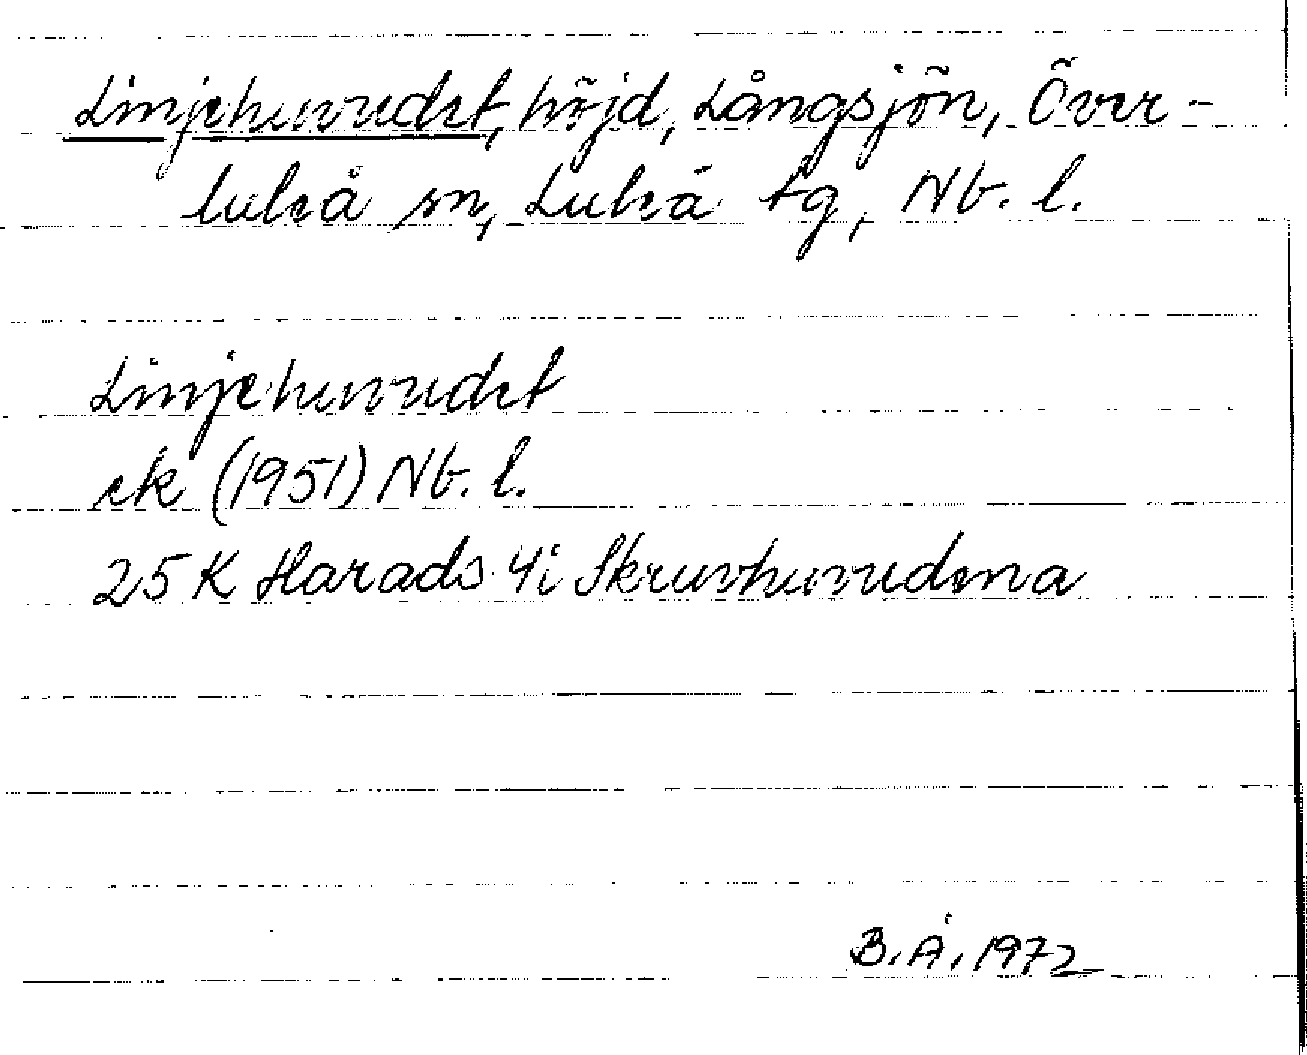 Linjehuvudet, höjd, Långsjön, Över-
luleå sn, Luleå tg, Nb. l.
Linjehuvudet
ek (1951) Nb. l.
25 K Harads 4i Skruvhuvudena
B.Å. 1972